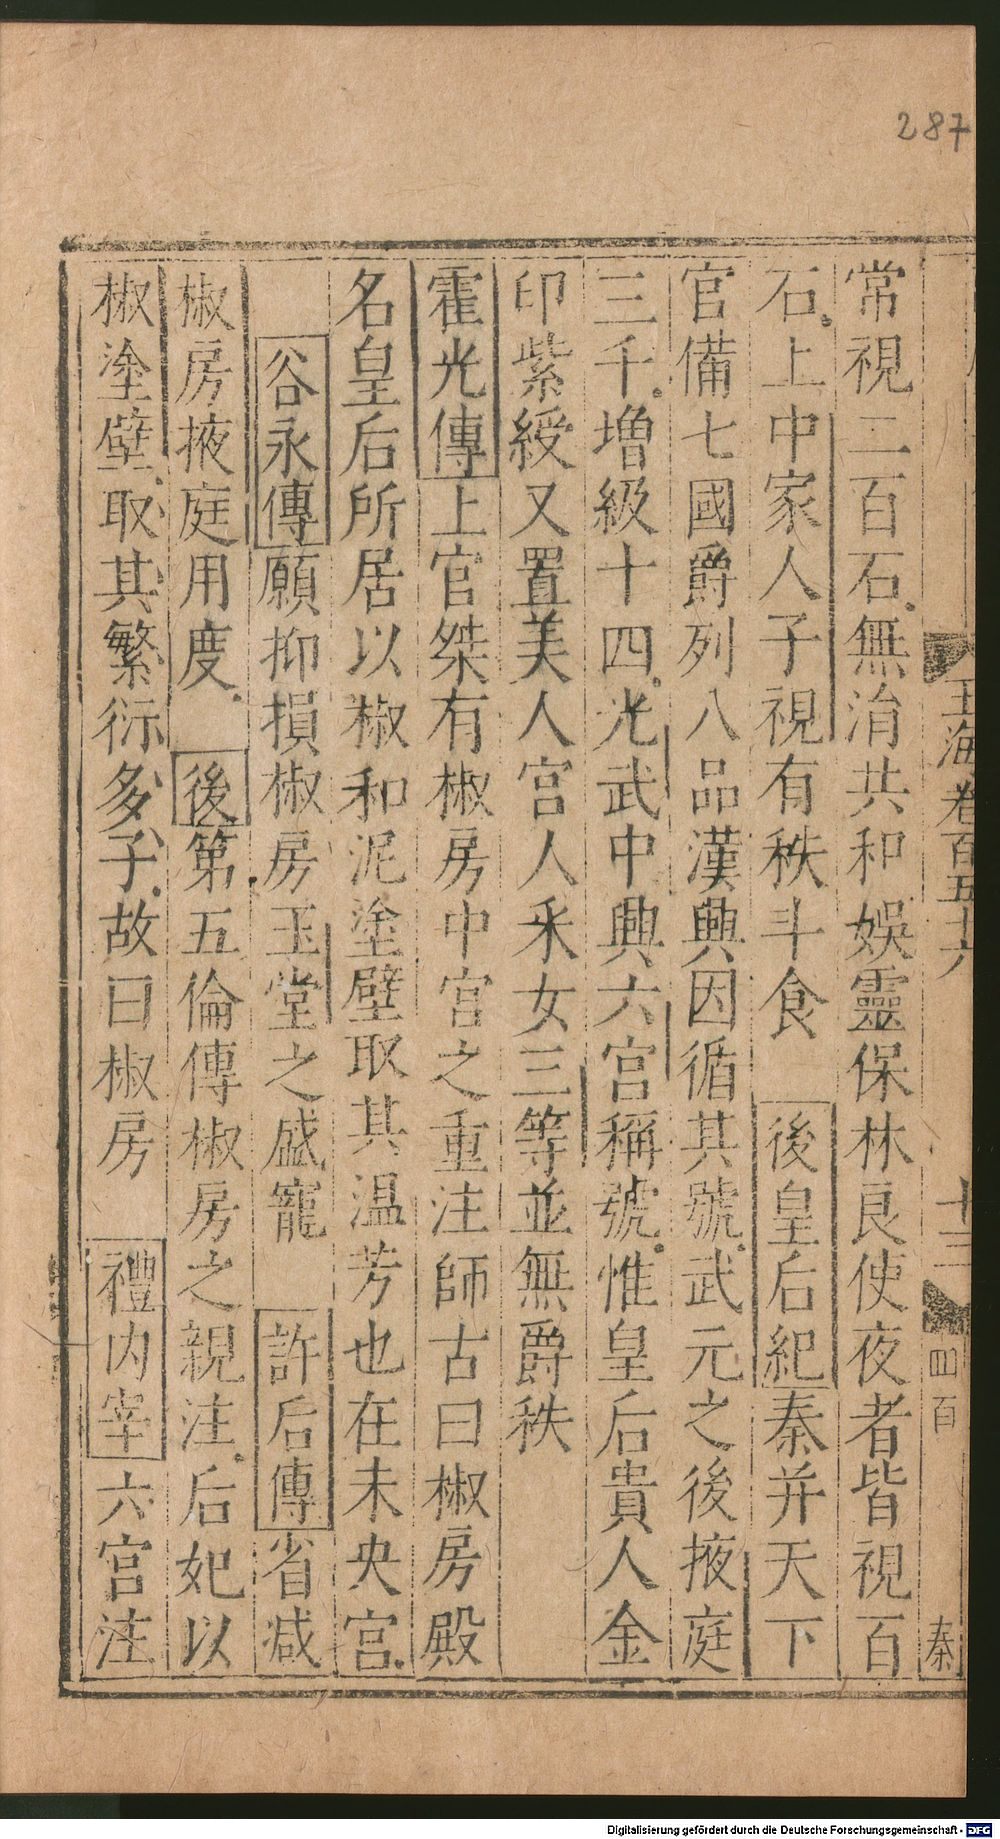 287
玉海卷百五十六
十三
四百
秦
常視二百石無涓共和娛靈保林良使夜者皆視百
石上中家人子視有秩斗食 後皇后紀秦并天下
官備七國爵列八品漢興因循其號武元之後掖庭
三千增級十四光武中興六宮稱號惟皇后貴人金
印紫綬又置美人宮人采女三等並無爵秩
霍光傳上官桀有椒房中宮之重注師古曰椒房殿
名皇后所居以椒和泥塗壁取其温芳也在未央宮
谷永傳願抑損椒房玉堂之盛寵 許后傳省减
椒房掖庭用度 後第五倫傳椒房之親注后妃以
椒塗壁取其繁衍多子故曰椒房 禮内宰六宮注
Digitalisierung gefördert durch die Deutsche Forschungsgemeinschaft - DFG